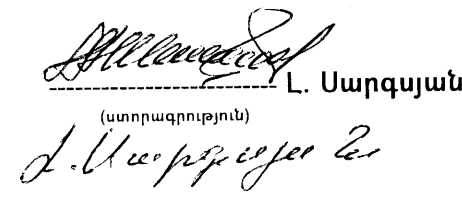 Լ. Սարգսյան
(ստորագրություն)
Լ. Սարգսյան